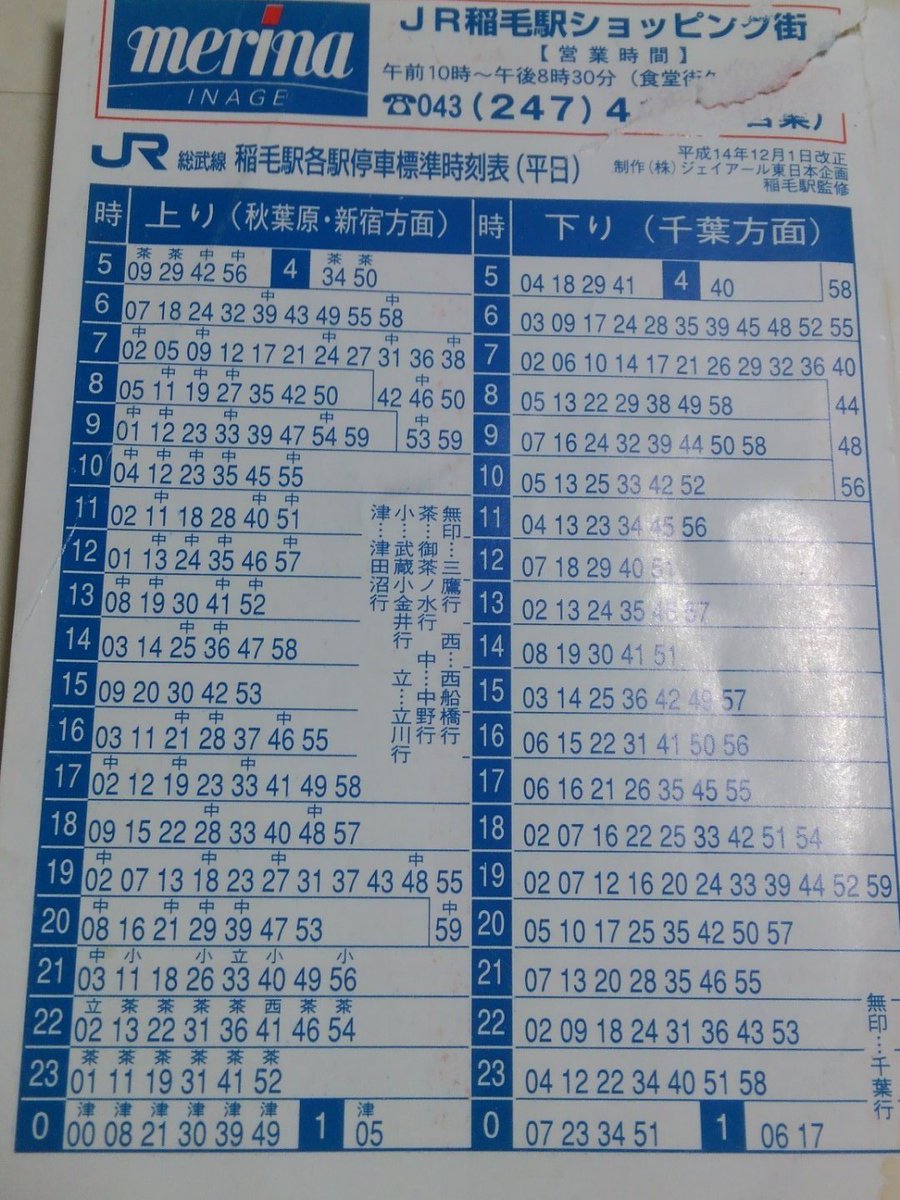 merina
INAGE
JR稲毛駅ショッピング街
【営業時間】
午前10時～午後8時30分（食堂街
☎043(247)4
JR 総武線 稲毛駅各駅停車標準時刻表(平日)
平成14年12月1日改正
制作(株)ジェイアール東日本企画
稲毛駅監修
時 上り(秋葉原・新宿方面) 時 下り (千葉方面)
茶 茶 中 中 茶 茶
5 09 29 42 56 4 34 50 5 04 18 29 41 4 40 58
中 中
6 07 18 24 32 39 43 49 55 58 6 03 09 17 24 28 35 39 45 48 52 55
中 中 中 中 中
7 02 05 09 12 17 21 24 27 31 36 38 7 02 06 10 14 17 21 26 29 32 36 40
中 中 中 中
8 05 11 19 27 35 42 50 42 46 50 8 05 13 22 29 38 49 58 44
中 中 中 中 中
9 01 12 23 33 39 47 54 59 53 59 9 07 16 24 32 39 44 50 58 48
中 中 中 中 中
10 04 12 23 35 45 55 10 05 13 25 33 42 52 56
中 中 中
11 02 11 18 28 40 51 11 04 13 23 34 45 56
中 中 中 中
12 01 13 24 35 46 57 12 07 18 29 40 51
中 中 中 中
13 08 19 30 41 52 13 02 13 24 35 46 57
中 中
14 03 14 25 36 47 58 14 08 19 30 41 51
15 09 20 30 42 53 15 03 14 25 36 42 49 57
中 中 中
16 03 11 21 28 37 46 55 16 06 15 22 31 41 50 56
中 中 中
17 02 12 19 23 33 41 49 58 17 06 16 21 26 35 45 55
中 中
18 09 15 22 28 33 40 48 57 18 02 07 16 22 25 33 42 51 54
中 中 中 中
19 02 07 13 18 23 27 31 37 43 48 55 19 02 07 12 16 20 24 33 39 44 52 59
中 中 中 中 中
20 08 16 21 29 39 47 53 59 20 05 10 17 25 35 42 50 57
中 小 小 立 小 小
21 03 11 18 26 33 40 49 56 21 07 13 20 28 35 46 55
立 茶 茶 茶 茶 西 茶 茶
22 02 13 22 31 36 41 46 54 22 02 09 18 24 31 36 43 53
茶 茶 茶 茶 茶 茶
23 01 11 19 31 41 52 23 04 12 22 34 40 51 58
津 津 津 津 津 津 津
0 00 08 21 30 39 49 1 05 0 07 23 34 51 1 06 17
無印…三鷹行 西…西船橋行
茶…御茶ノ水行 中…中野行
小…武蔵小金井行 立…立川行
津…津田沼行
無印…千葉行